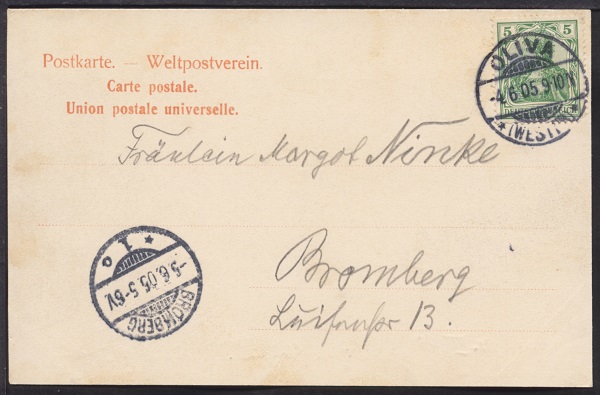 Postkarte. — Weltpostverein.
Carte postale.
Union postale universelle.
5 5
OLIVA
-4.6.05.9-10V.
*(WESTPR.)*
Fräulein Margot Ninke
Bromberg
13.
* 1 o
-5.6.05.5-6V.
BROMBERG